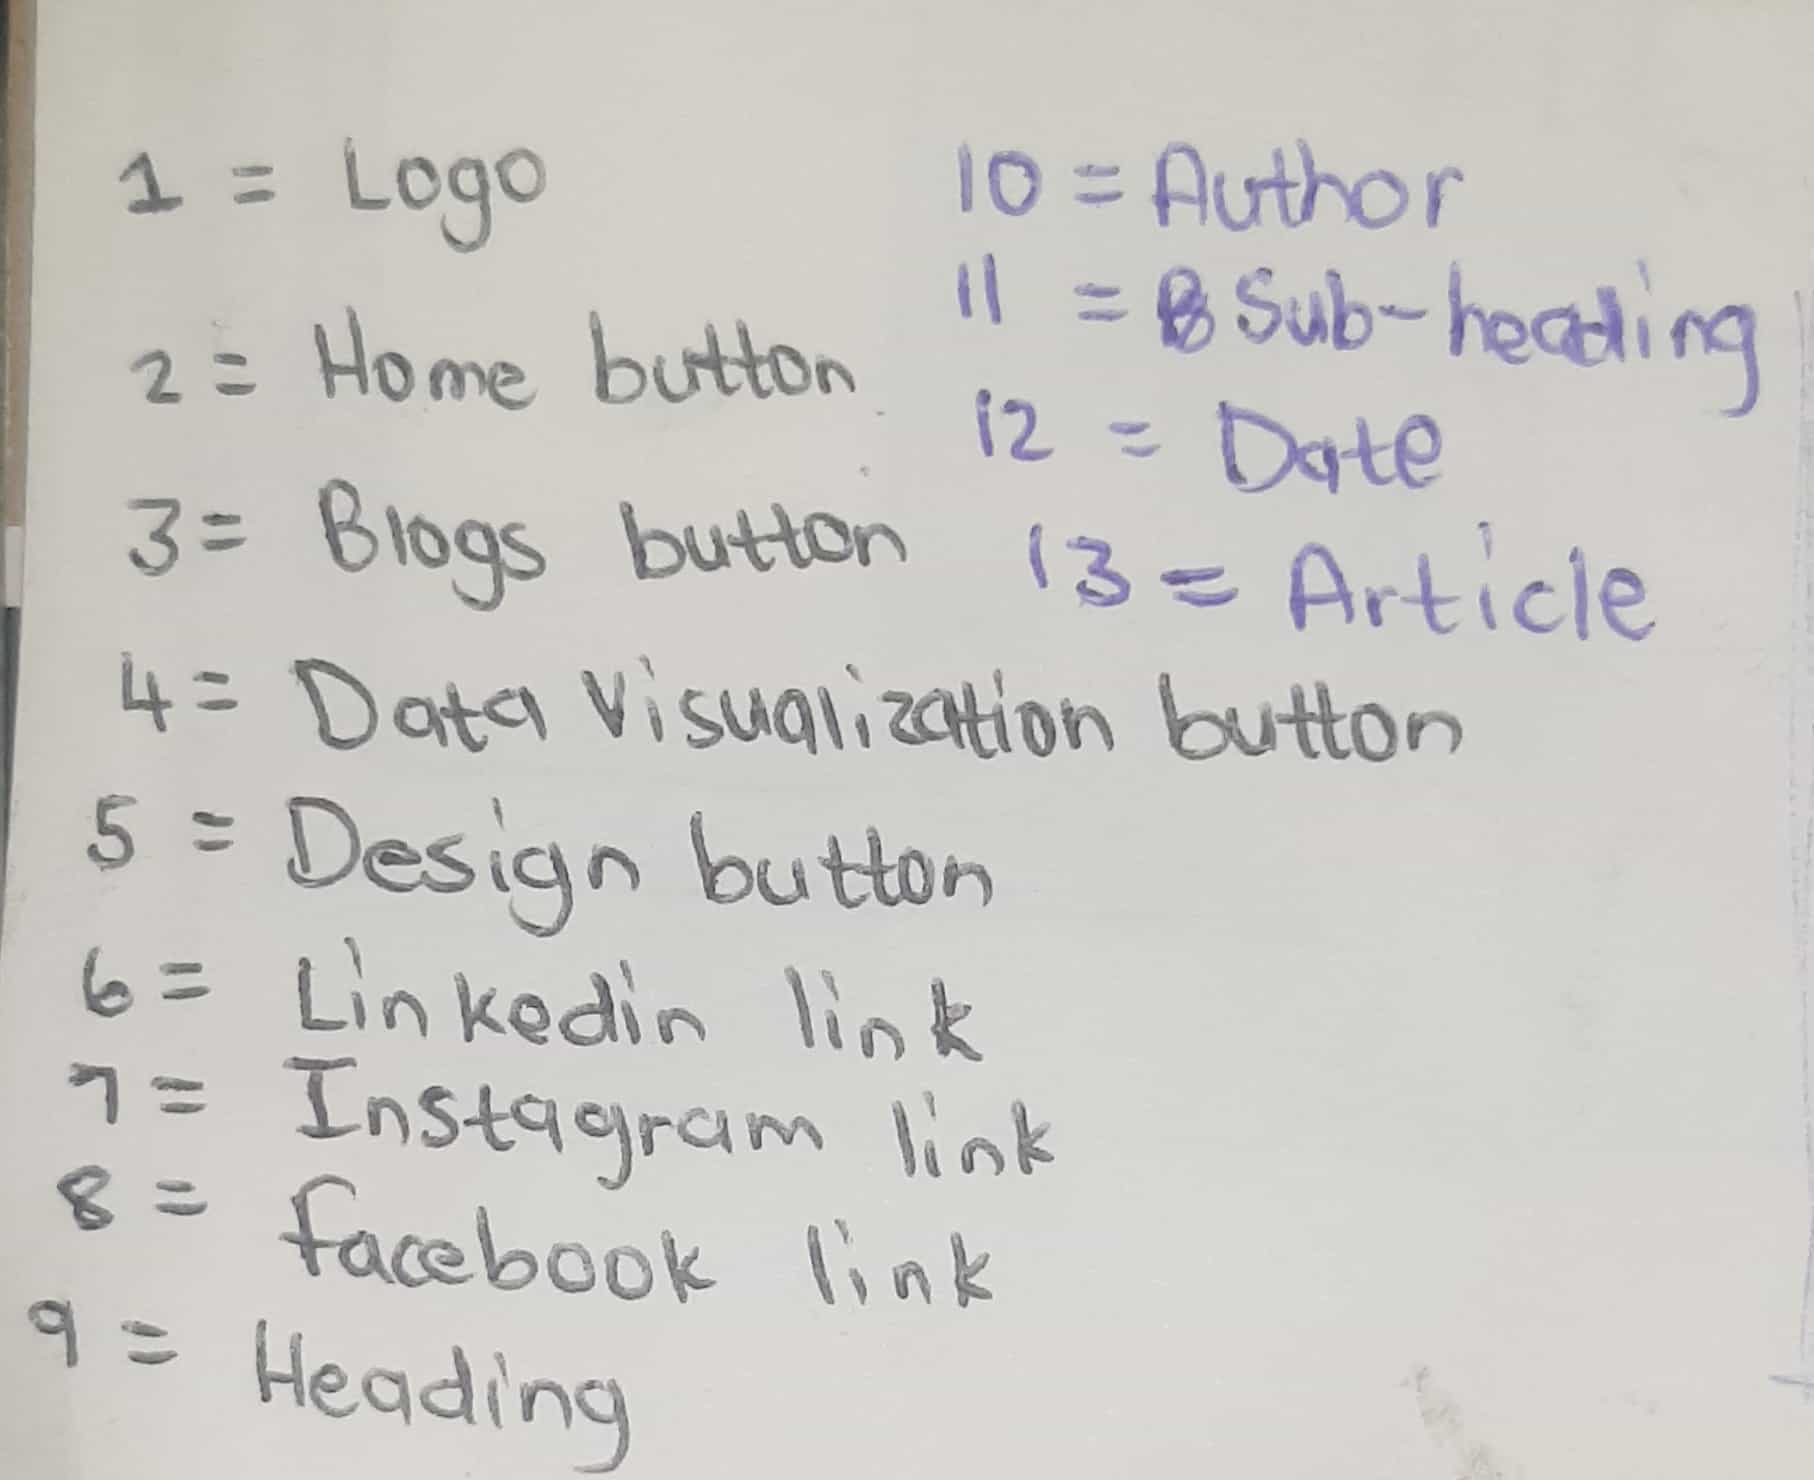 1 = Logo
2 = Home button
3 = Blogs button
4 = Data Visualization button
5 = Design button
6 = Linkedin link
7 = Instagram link
8 = facebook link
9 = Heading
10 = Author
11 = Sub-heading
12 = Date
13 = Article